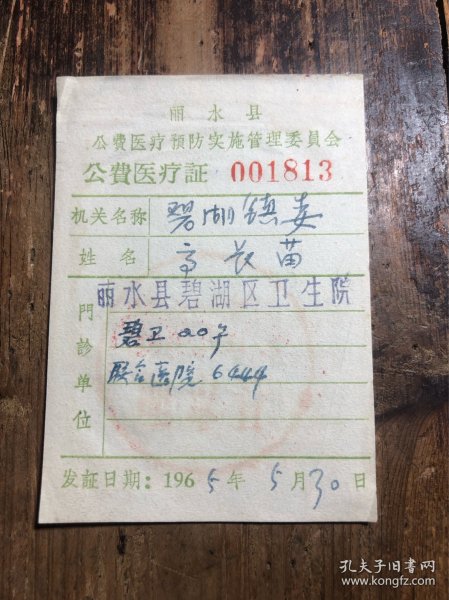 丽水县
公費医疗预防实施管理委員会
公費医疗証 001813
机关名称 碧湖镇委
姓名 高长苗
門診单位 丽水县碧湖区卫生院
碧卫20号
联合医院 6444
发証日期：1965年5月30日
孔夫子旧书网
www.kongfz.com